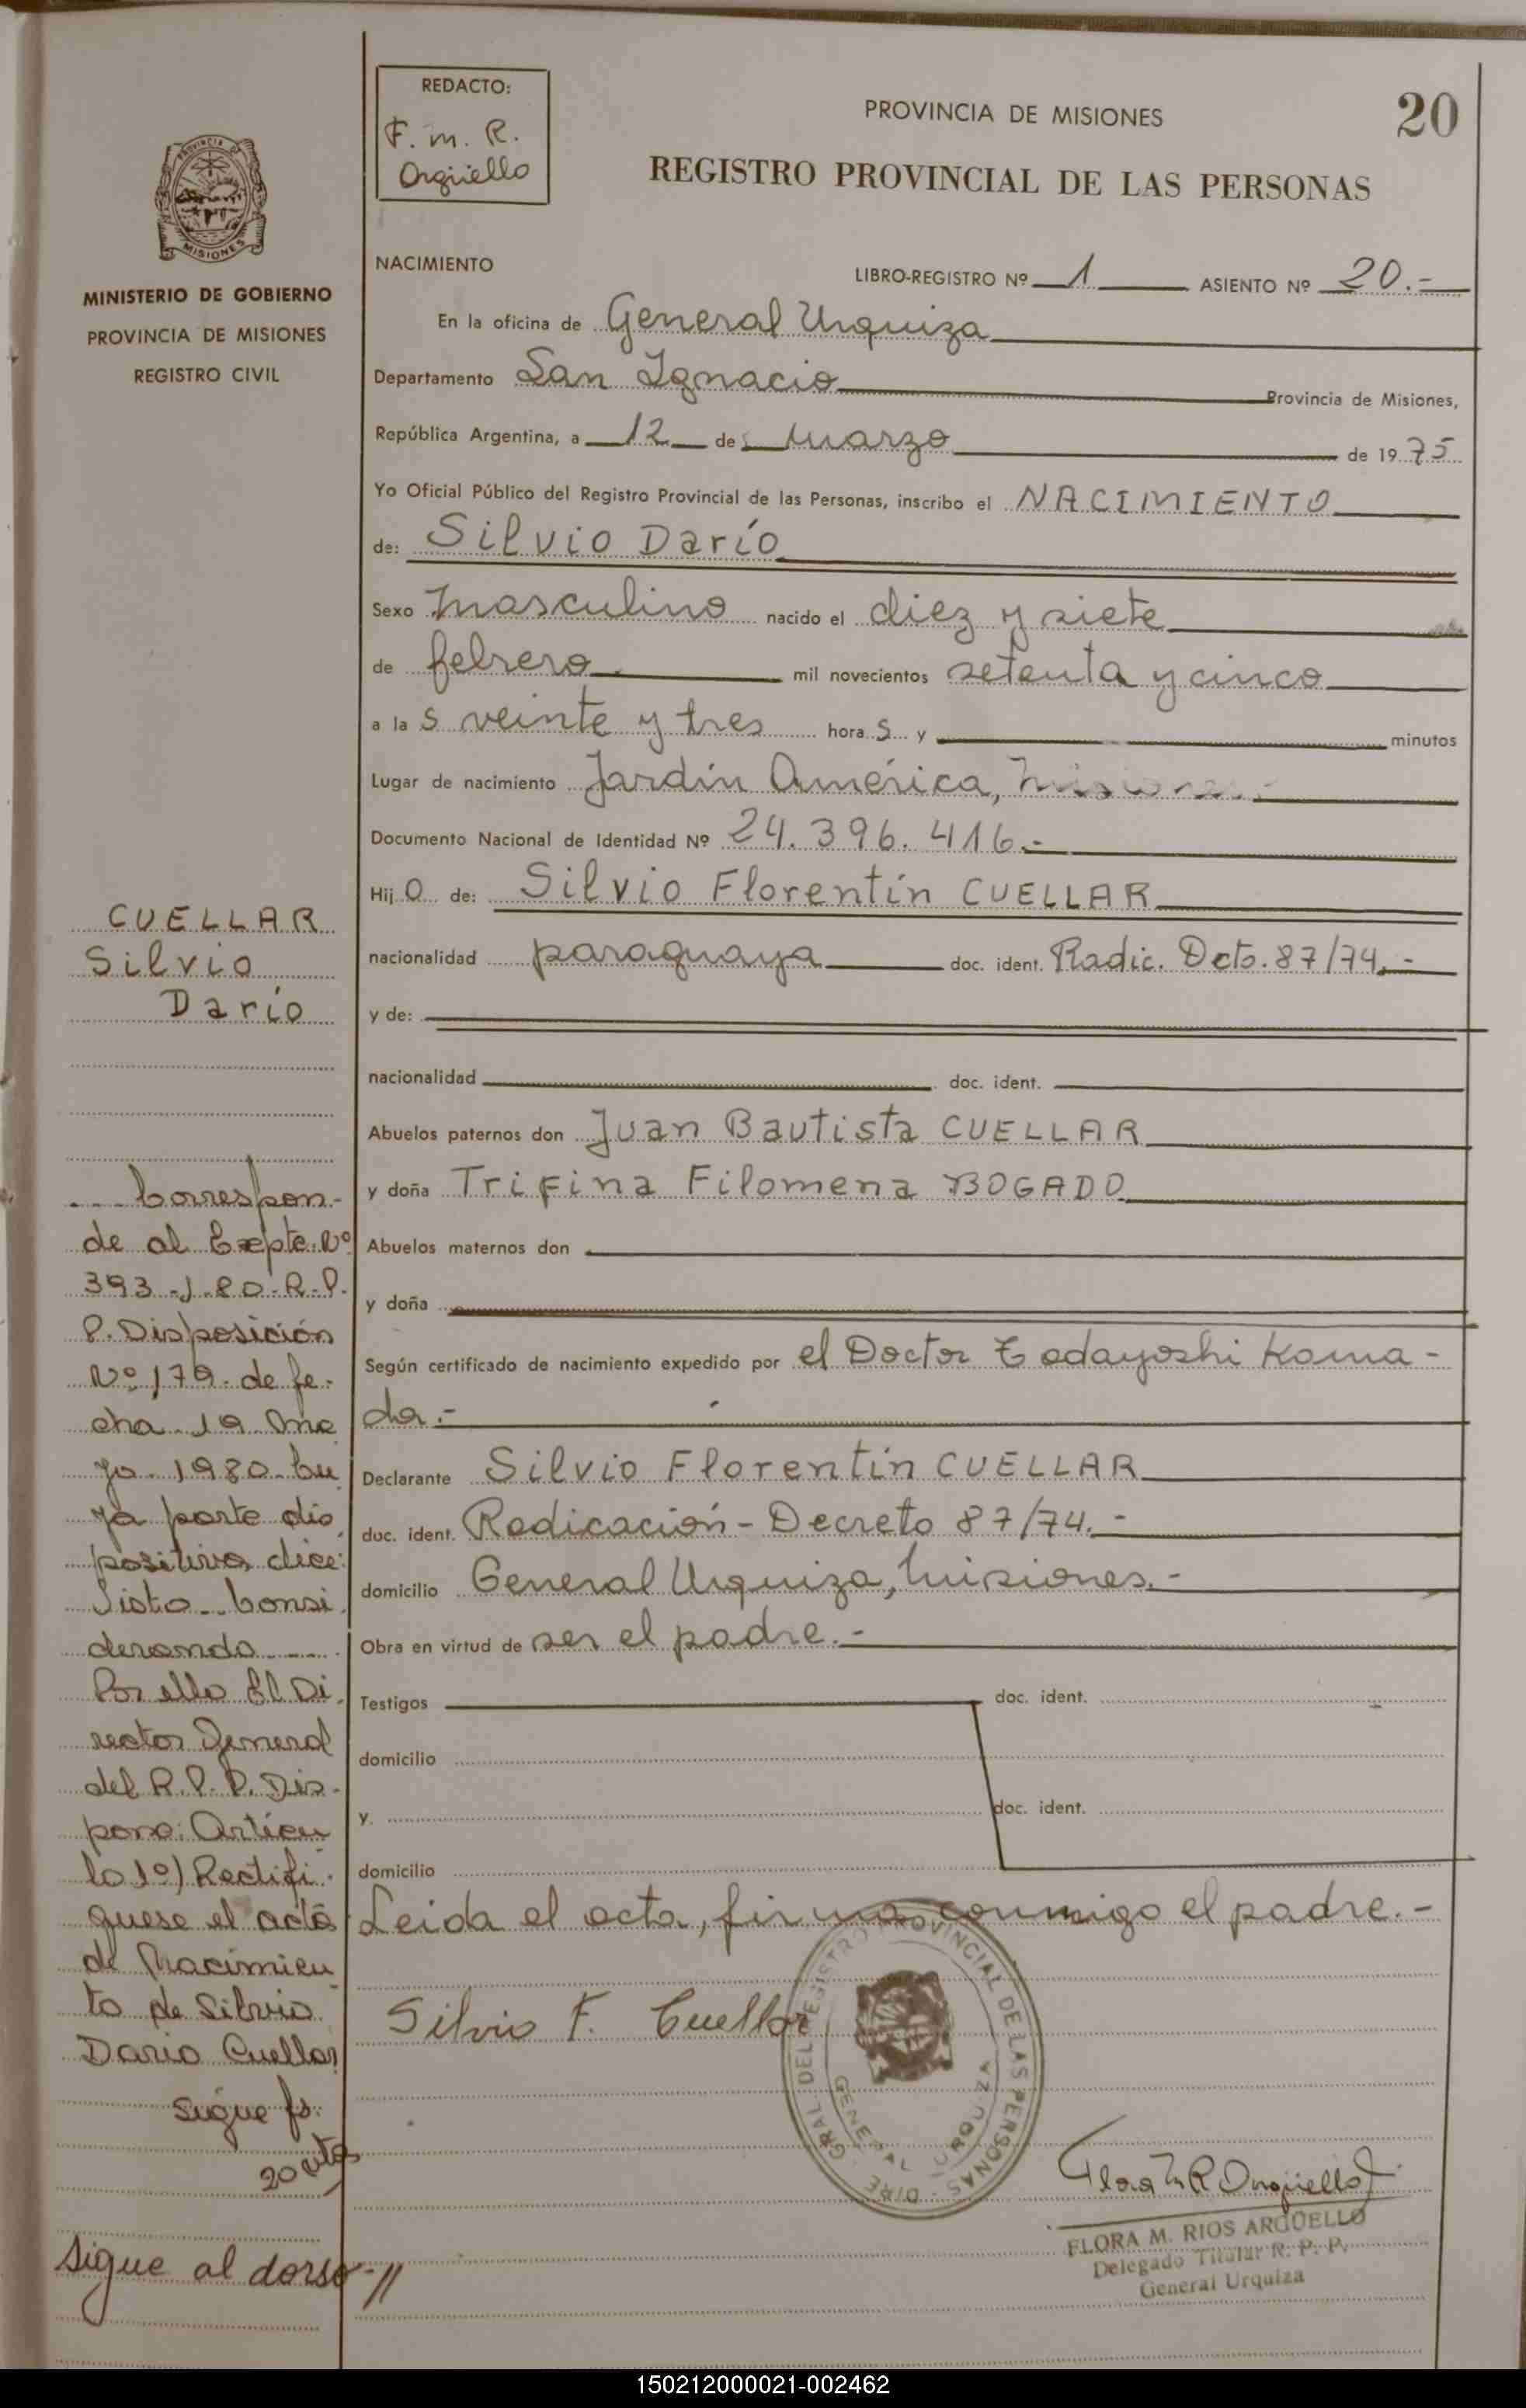 REDACTO:
F. M. R.
Orgüello
PROVINCIA DE MISIONES
20
REGISTRO PROVINCIAL DE LAS PERSONAS
PROVINCIA
MISIONES
MINISTERIO DE GOBIERNO
PROVINCIA DE MISIONES
REGISTRO CIVIL
NACIMIENTO
LIBRO-REGISTRO Nº 1 ASIENTO Nº 20.-
En la oficina de General Urquiza
Departamento San Ignacio Provincia de Misiones,
República Argentina, a 12 de marzo de 1975
Yo Oficial Público del Registro Provincial de las Personas, inscribo el NACIMIENTO
de: Silvio Darío
Sexo masculino nacido el diez y siete
de febrero mil novecientos setenta y cinco
a las veinte y tres horas y minutos
Lugar de nacimiento Jardín América, Misiones.-
Documento Nacional de Identidad Nº 24.396.416.-
Hijo de: Silvio Florentín CUELLAR
nacionalidad paraguaya doc. ident. Radic. Dcto. 87/74.-
y de:
nacionalidad doc. ident.
Abuelos paternos don Juan Bautista CUELLAR
y doña Trifina Filomena BOGADO
Abuelos maternos don
y doña
Según certificado de nacimiento expedido por el Doctor Tadayoshi Kama-
da.-
Declarante Silvio Florentín CUELLAR
doc. ident. Radicación - Decreto 87/74.-
domicilio General Urquiza, Misiones.-
Obra en virtud de ser el padre.-
Testigos doc. ident.
domicilio
y. doc. ident.
domicilio
Leida el acta, firma conmigo el padre.-
Silvio F. Cuellar
DIRE. GRAL. DEL REGISTRO PROVINCIAL DE LAS PERSONAS
GENERAL URQUIZA
Flora M R Orgüello
FLORA M. RIOS ARGÜELLO
Delegado Titular R. P. P.
General Urquiza
CUELLAR
Silvio
Darío
Correspon-
de al Expte. Nº
393-J-80-R.P.
P. Disposición
Nº 179. de fe-
cha 19 Ma
yo. 1980. Cu
ya parte dis
positiva dice:
Visto... Consi
derando....
Por ello El Di
rector General
del R.P.P. Dis-
pone: Artícu
lo 1º) Rectifí
quese el acta
de Nacimien
to de Silvio
Dario Cuellar
Sigue fs.
20 vto
Sigue al dorso-//
150212000021-002462